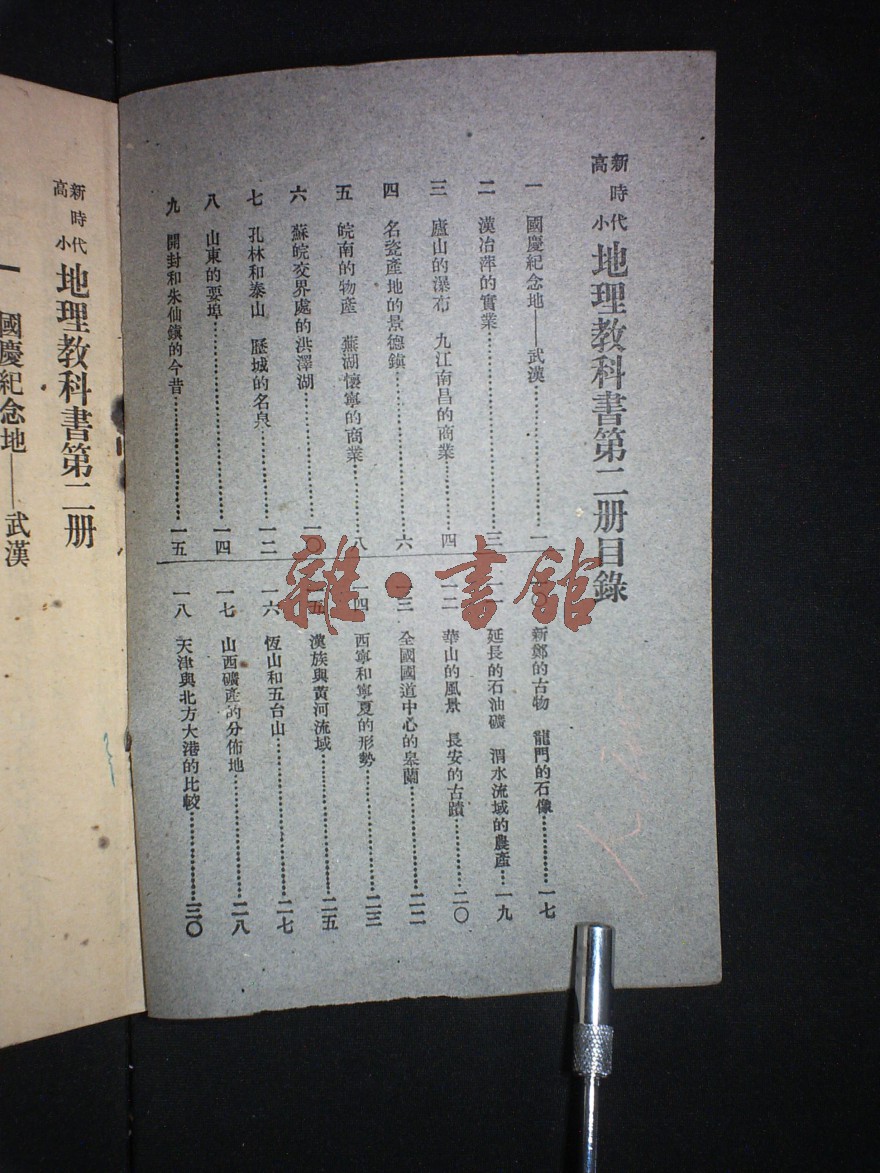 新時代
高小
地理教科書第二册目錄
一 國慶紀念地——武漢…………一
二 漢冶萍的實業…………三
三 廬山的瀑布 九江南昌的商業…………四
四 名瓷產地的景德鎮…………六
五 皖南的物產 蕪湖懷寧的商業…………八
六 蘇皖交界處的洪澤湖…………一〇
七 孔林和泰山 歷城的名泉…………一二
八 山東的要埠…………一四
九 開封和朱仙鎮的今昔…………一五
新鄭的古物 龍門的石像…………一七
延長的石油礦 渭水流域的農產…………一九
一二 華山的風景 長安的古蹟…………二〇
一三 全國國道中心的皋蘭…………二二
一四 西寧和寧夏的形勢…………二三
一五 漢族與黃河流域…………二五
一六 恆山和五台山…………二七
一七 山西礦產的分佈地…………二八
一八 天津與北方大港的比較…………三〇
新時代
高小
地理教科書第二册
一 國慶紀念地——武漢
雜·書館